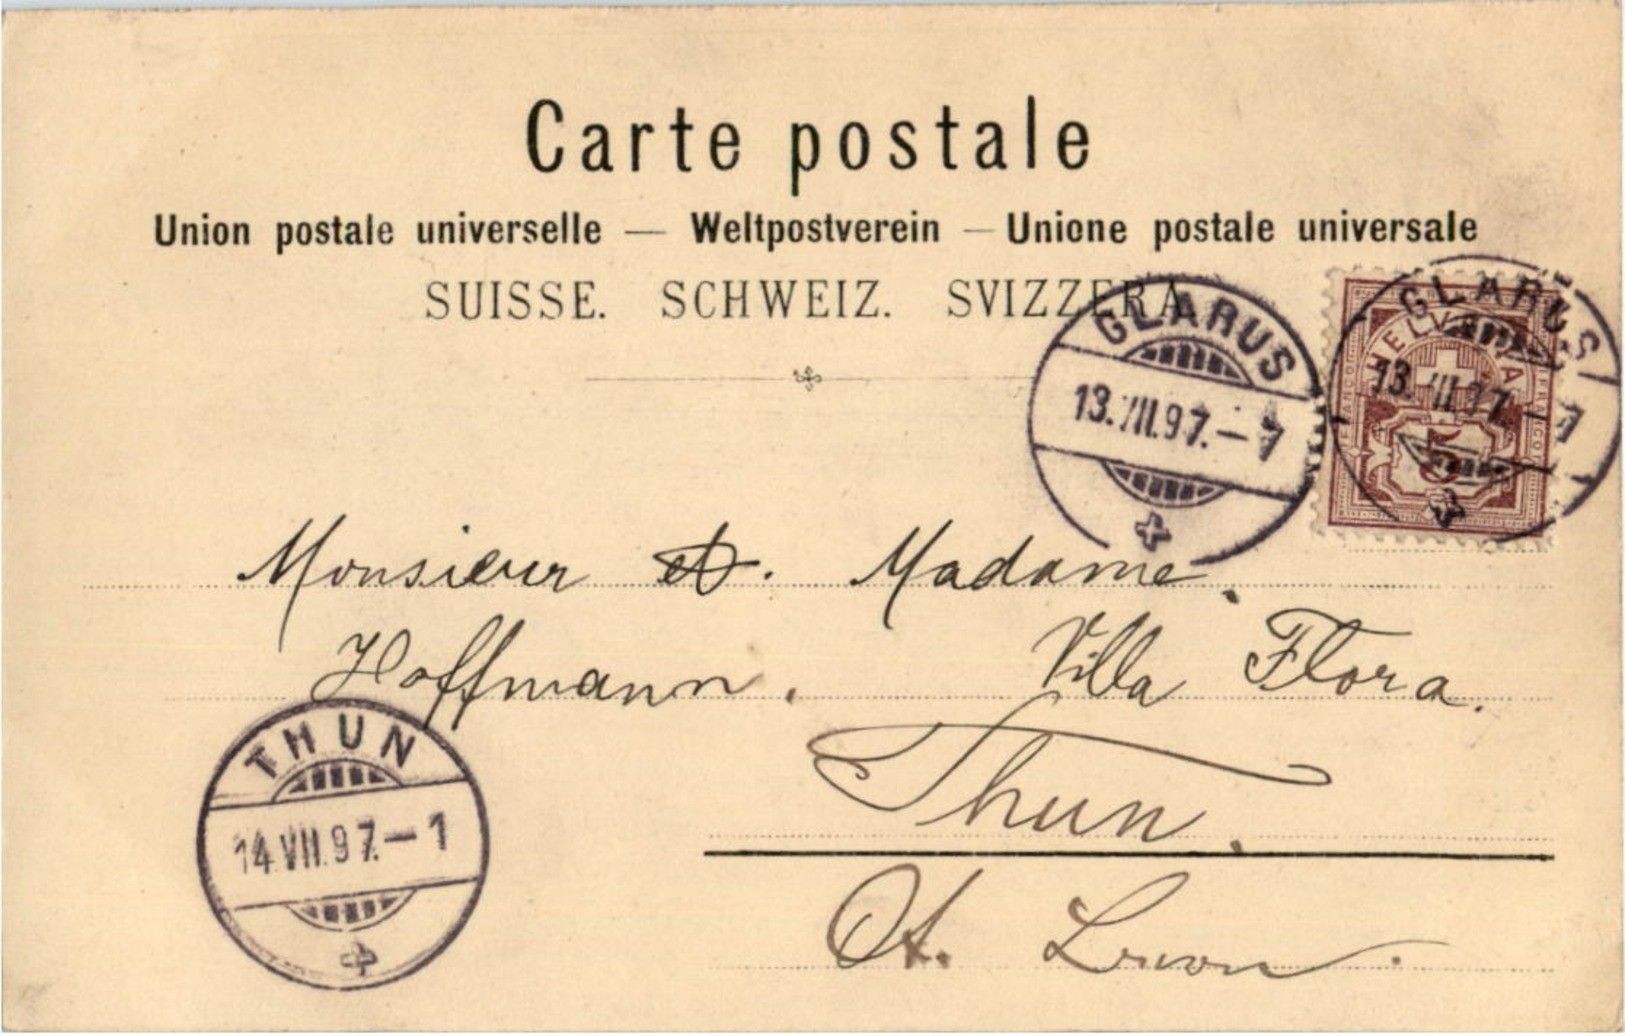 Carte postale
Union postale universelle — Weltpostverein — Unione postale universale
SUISSE. SCHWEIZ. SVIZZERA
GLARUS
13.VII.97.–7
GLARUS
13.VII.97.–7
HELVETIA
FRANCO
5
Monsieur et. Madame.
Hoffmann. Villa Flora.
Thun.
THUN
14.VII.97.–1